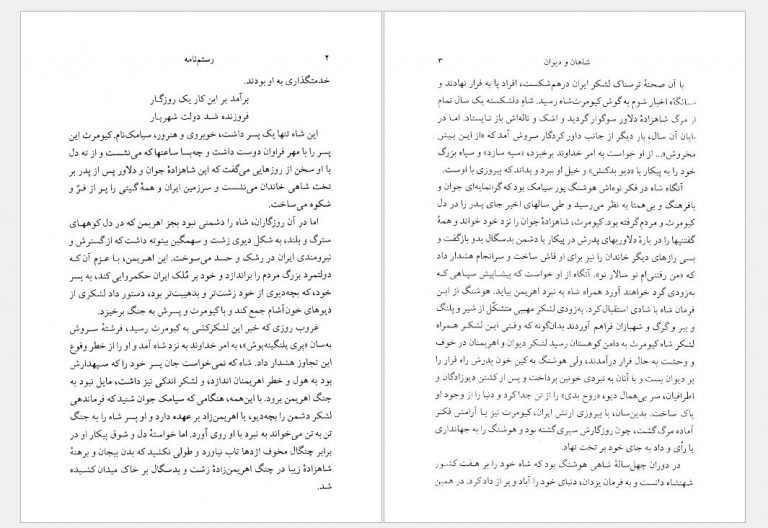 ۲
رستم‌نامه
خدمتگذاری به او بودند.
برآمد بر این کار یک روزگار
فروزنده شد دولت شهریار
این شاه تنها یک پسر داشت، خوبروی و هنرور، سیامک‌نام. کیومرث این
پسر را با مهر فراوان دوست داشت و چه‌بسا ساعتها که می‌نشست و از ته دل
با او سخن از روزهایی می‌گفت که این شاهزادهٔ جوان و دلاور پس از پدر بر
تخت شاهی خاندان می‌نشست و سرزمین ایران و همهٔ گیتی را پر از فرّ و
شکوه می‌ساخت.
اما در آن روزگاران، شاه را دشمنی نبود بجز اهریمن که در دل کوههای
سترگ و بلند، به شکل دیوی زشت و سهمگین بیتوته داشت که از گسترش و
نیرومندی ایران در رشک و حسد می‌سوخت. این اهریمن، با عزم آن که
دولتمرد بزرگ مردم را براندازد و خود بر مُلک ایران حکمروایی کند، به پسر
خود، که بچه‌دیوی از خود زشت‌تر و بدهیبت‌تر بود، دستور داد لشکری از
دیوهای خون‌آشام جمع کند و با کیومرث و پسرش به جنگ برخیزد.
غروب روزی که خبر این لشکرکشی به کیومرث رسید، فرشتهٔ سروش
به‌سان «پری پلنگینه‌پوش»، به امر خداوند به نزد شاه آمد و او را از خطر وقوع
این تجاوز هشدار داد. شاه که نمی‌خواست جان پسر خود را که سپهدارش
بود به هول و خطر اهریمنان اندازد، و لشکر اندکی نیز داشت، مایل نبود به
جنگ اهریمن برود. با این‌همه، هنگامی که سیامک جوان شنید که فرماندهی
لشکر دشمن را بچه‌دیو، یا اهریمن‌زاد بر عهده دارد و او پسر شاه را به جنگ
تن به تن می‌خواند به نبرد با او روی آورد. اما خواستهٔ دل و شوق پیکار او در
برابر چنگال مخوف اژدها تاب نیاورد و طولی نکشید که بدن بیجان و برهنهٔ
شاهزادهٔ زیبا در چنگ اهریمن‌زادهٔ زشت و بدسگال بر خاک میدان کشیده
شد.
شاهان و دیوان
۳
با آن صحنهٔ ترسناک لشکر ایران درهم‌شکست، افراد پا به فرار نهادند و
اخبار شوم به گوش کیومرث‌شاه رسید. شاهِ دلشکسته یک سال تمام
از مرگ شاهزادهٔ دلاور سوگوار گردید و اشک و ناله‌اش باز نایستاد. اما در
پایان آن سال، بار دیگر از جانب داور کردگار سروش آمد که «از این بیش
مخروش»... از او خواست به امر خداوند برخیزد، «سپه سازد» و سپاه بزرگ
خود را به پیکار با «دیو بدکنش» و خیل او ببرد و بداند که پیروزی با اوست.
آنگاه شاه در فکر نوه‌اش هوشنگ پور سیامک بود که گرانمایه‌ای جوان و
بافرهنگ و بی‌همتا به نظر می‌رسید و طی سالهای اخیر جای پدر را در دل
کیومرث و مردم گرفته بود. کیومرث، شاهزادهٔ جوان را نزد خود خواند و همهٔ
گفتنیها را در بارهٔ دلاوریهای پدرش در پیکار با دشمن بدسگال بدو بازگفت و
بسی رازهای دیگر خاندان را نیز برای او فاش ساخت و سرانجام هشدار داد
که «من رفتنی‌ام تو سالار نو». آنگاه از او خواست که پیشاپیش سپاهی که
به‌زودی گرد خواهند آورد همراه شاه به نبرد اهریمن بیاید. هوشنگ از این
فرمان شاه با شادی استقبال کرد. به‌زودی لشکر مهیبی متشکّل از شیر و پلنگ
و ببر و گرگ و شهبازان فراهم آوردند بدان‌گونه که وقتی این لشکر همراه
لشکر شاه کیومرث به دامن کوهستان رسید لشکر دیوان و اهریمنان در خوف
و وحشت به حال فرار درآمدند، ولی هوشنگ به کین خون پدرش راه فرار را
بر دیوان بست و با آنان به نبردی خونین پرداخت و پس از کشتن دیوزادگان و
اطرافیان، سر بی‌همال دیو، «روح بدی» را از تن جدا کرد و دنیا را از وجود او
پاک ساخت. بدین‌سان، با پیروزی ارتش ایران، کیومرث نیز با آرامش فکر
آماده مرگ گشت، چون روزگارش سپری گشته بود و هوشنگ را به جهانداری
با رأی و داد به جای خود بر تخت نهاد.
در دوران چهل‌سالهٔ شاهی هوشنگ بود که شاه خود را بر هفت کشور
شهنشاه دانست و به فرمان یزدان، دنیای خود را آباد و پر از داد کرد. در همین